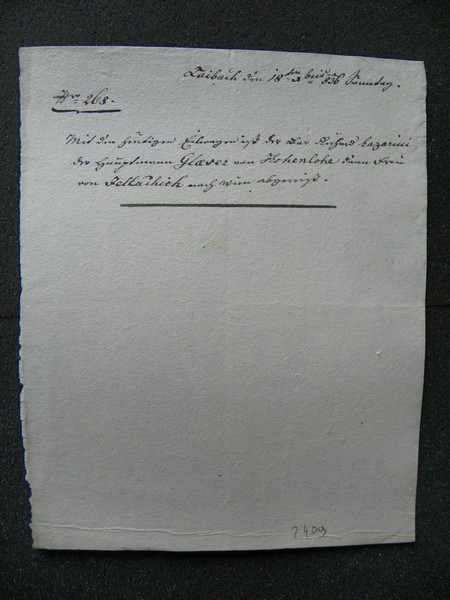 Laibach den 18ten Xbris 836 Sonntag.
Nro 268.
Mit dem heutigen Eilwagen ist der Bar Lazarini
der Hauptmann Glaeser von Hohenlohe dann Frau
von Jellachich nach Wien abgereist.
2409